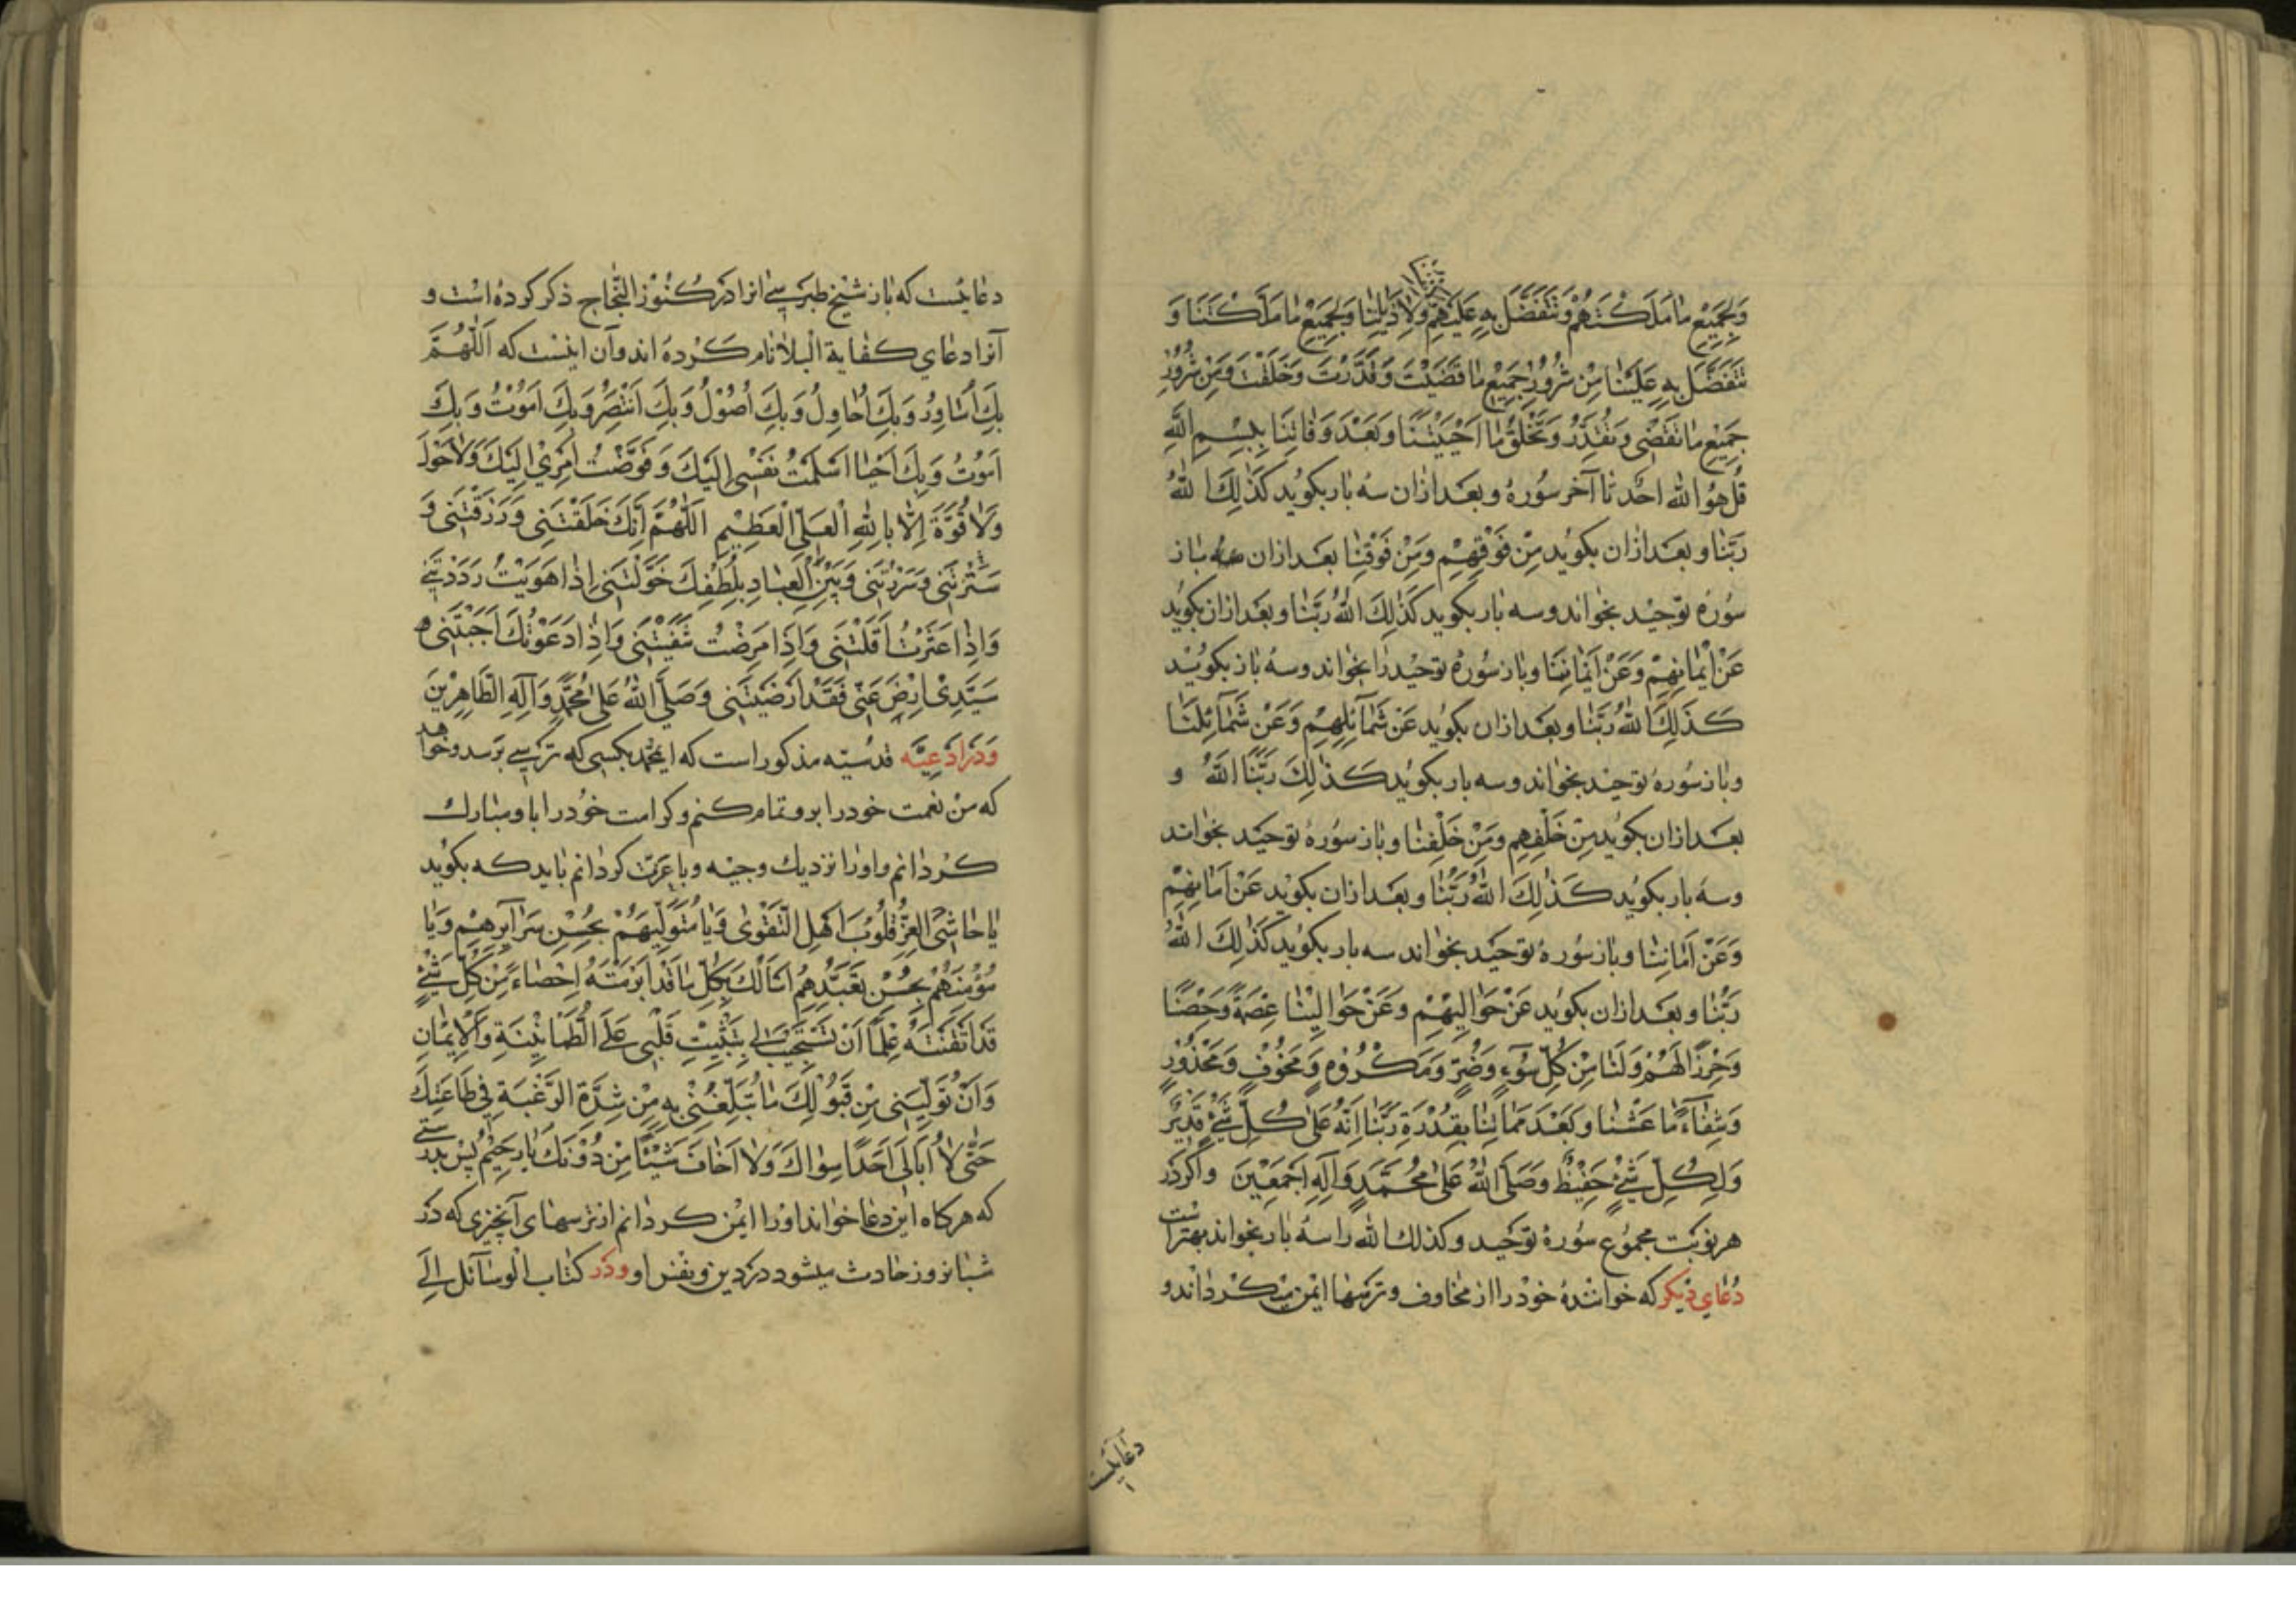 وَلِجَمِيعِ مٰا مَلَّكْتَهُمْ وَتَتَفَضَّلُ بِهِ عَلَيْهِمْ وَلِاَذَيٰلِنٰا وَلِجَمِيعِ مٰا مَلَّكْتَنٰا وَ
تَتَفَضَّلُ بِهِ عَلَيْنٰا مِنْ شُرُورِ جَمِيْعِ مٰا قَضَيْتَ وَقَدَّرْتَ وَخَلَقْتَ وَمِنْ شُرُورِ
جَمِيْعِ مٰا تَقْضِى وَتُقَدِّرُ وَتَخْلُقُ مٰا اَحْيَيْتَنٰا وَبَعْدَ وَفٰاتِنٰا بِبِسْمِ اللّٰهِ
قُلْ هُوَ اللّٰه اَحَد تا آخر سُوره و بعد ازان سه بار بكويد كَذٰلِكَ اللّٰهُ
رَبُّنٰا و بعد ازان بكويد مِنْ فَوْقِهِمْ وَمِنْ فَوْقِنٰا بعد ازان باز
سُوره توحيد بخواند و سه بار بكويد كَذٰلِكَ اللّٰهُ رَبُّنٰا و بعد ازان بكويد
عَنْ اَيْمٰانِهِمْ وَعَنْ اَيْمٰانِنٰا و باز سُوره توحيد را بخواند و سه باز بكويد
كَذٰلِكَ اللّٰهُ رَبُّنٰا و بعد ازان بكويد عَنْ شَمٰآئِلِهِمْ وَعَنْ شَمٰآئِلِنٰا
و باز سُوره توحيد بخواند و سه بار بكويد كَذٰلِكَ رَبُّنَا اللّٰهُ و
بعد ازان بكويد مِنْ خَلْفِهِمْ وَمِنْ خَلْفِنٰا و باز سُوره توحيد بخواند
و سه بار بكويد كَذٰلِكَ اللّٰهُ رَبُّنٰا و بعد ازان بكويد عَنْ اَمٰامِهِمْ
وَعَنْ اَمٰامِنٰا و باز سُوره توحيد بخواند سه بار بكويد كَذٰلِكَ اللّٰهُ
رَبُّنٰا و بعد ازان بكويد عَنْ حَوٰالِيْهِمْ وَعَنْ حَوٰالِيْنٰا عِصْمَةً وَحِصْنًا
وَحِرْزًا لَهُمْ وَلَنٰا مِنْ كُلِّ سُوٓءٍ وَضُرٍّ وَمَكْرُوهٍ وَمَخُوْفٍ وَمَحْذُوْرٍ
وَشِفٰآءً مٰا عِشْنٰا وَبَعْدَ مَمٰاتِنٰا بِقُدْرَةِ رَبِّنٰا اِنَّهُ عَلٰى كُلِّ شَيْءٍ قَدِيْرٌ
وَلِكُلِّ شَيْءٍ حَفِيْظٌ وَصَلَّى اللّٰهُ عَلٰى مُحَمَّدٍ وَآلِهِ اَجْمَعِيْنَ و اكر در
هر نوبت مجموع سُوره توحيد و كذلك اللّٰه را سه بار بخواند بهتر است
دُعاى ديكر كه خواننده خود را از مخاوف و ترسها ايمن ميكرداند و
دعائيست
دعائيست كه باز شيخ طبرسى انرا در كنوز النجاح ذكر كرده است و
آنرا دعاى كفاية البلاء نام كرده اند و آن اينست كه اَللّٰهُمَّ
بِكَ اُسٰاوِرُ وَبِكَ اُحٰاوِلُ وَبِكَ اَصُوْلُ وَبِكَ اَنْتَصِرُ وَبِكَ اَمُوْتُ وَبِكَ
اَمُوْتُ وَبِكَ اَحْيٰا اَسْلَمْتُ نَفْسِى اِلَيْكَ وَفَوَّضْتُ اَمْرِيْ اِلَيْكَ وَلاٰ حَوْلَ
وَلاٰ قُوَّةَ اِلّٰا بِاللّٰهِ الْعَلِىِّ الْعَظِيْمِ اَللّٰهُمَّ اِنَّكَ خَلَقْتَنِى وَرَزَقْتَنِى وَ
سَتَرْتَنِى وَسَرَرْتَنِى وَبَيْنَ الْعِبٰادِ بِلُطْفِكَ خَوَّلْتَنِى اِذٰا هَوَيْتُ رَدَدْتَنِى
وَاِذٰا عَثَرْتُ اَقَلْتَنِى وَاِذٰا مَرِضْتُ شَفَيْتَنِى وَاِذٰا دَعَوْتُكَ اَجَبْتَنِى
سَيِّدِىْ اِرْضَ عَنِّى فَقَدْ اَرْضَيْتَنِى وَصَلَّى اللّٰهُ عَلٰى مُحَمَّدٍ وَآلِهِ الطّٰاهِرِيْنَ
وَدَر ادعيَّه قدسيّه مذكور است كه ايمحمد بكسى كه ترسى برسد و خواهد
كه من نعمت خود را بر و تمام كنم و كرامت خود را با و مبارك
كردانم و اورا نزديك وجيه و با عزت كردانم بايد كه بكويد
يٰا حٰاشِىَ الْعِزِّ قُلُوْبَ اَهْلِ التَّقْوٰى وَيٰا مُتَوَلِّيَهُمْ بِحُسْنِ سَرٰآئِرِهِمْ وَيٰا
مُؤْمِنَهُمْ بِحُسْنِ تَعَبُّدِهِمْ اَسْاَلُكَ بِكُلِّ مٰا قَدْ اَبْرَمْتَهُ اِحْصٰاءً مِنْ كُلِّ شَيْءٍ
قَدْ اَتْقَنْتَهُ عِلْمًا اَنْ تَسْتَجِيْبَ لِى بِتَثْبِيْتِ قَلْبِى عَلَى الطُّمَاْنِيْنَةِ وَالْاِيْمٰانِ
وَاَنْ تُوَلِّيَنِى مِنْ قَبُوْلِكَ مٰا تُبَلِّغُنِيْ بِهِ مِنْ شِدَّةِ الرَّغْبَةِ فِي طٰاعَتِكَ
حَتّٰى لاٰ اُبٰالِىَ اَحَدًا سِوٰاكَ وَلاٰ اَخٰافَ شَيْئًا مِنْ دُوْنِكَ يٰا رَحِيْمُ پس بدرستى
كه هركاه اين دعا خواند اورا ايمن كردانم از ترسهاى آنچيزى كه در
شبانروز حادث ميشود در دين و نفس او و در كتاب الوسآئل الى